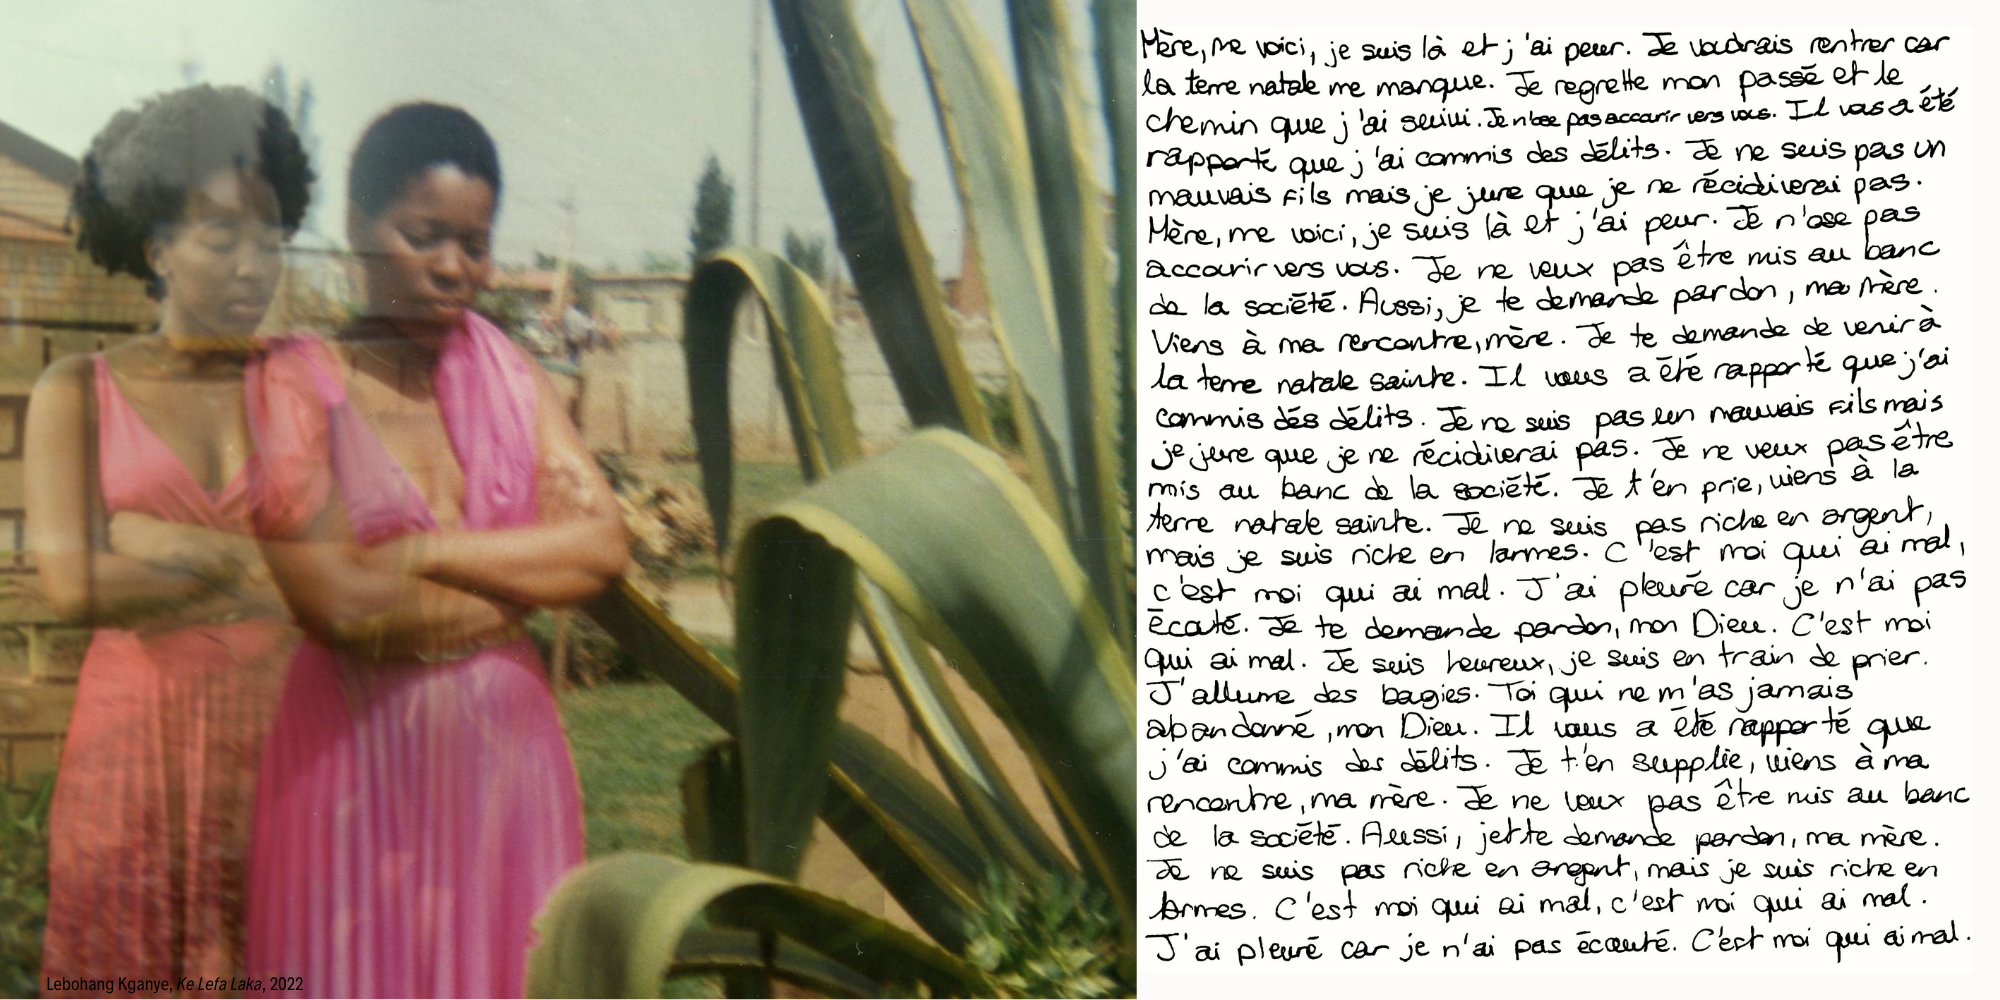 Mère, me voici, je suis là et j'ai peur. Je voudrais rentrer car
la terre natale me manque. Je regrette mon passé et le
chemin que j'ai suivi. Je n'ose pas accourir vers vous. Il vous a été
rapporté que j'ai commis des délits. Je ne suis pas un
mauvais fils mais je jure que je ne récidiverai pas.
Mère, me voici, je suis là et j'ai peur. Je n'ose pas
accourir vers vous. Je ne veux pas être mis au banc
de la société. Aussi, je te demande pardon, ma mère.
Viens à ma rencontre, mère. Je te demande de venir à
la terre natale sainte. Il vous a été rapporté que j'ai
commis des délits. Je ne suis pas un mauvais fils mais
je jure que je ne récidiverai pas. Je ne veux pas être
mis au banc de la société. Je t'en prie, viens à la
terre natale sainte. Je ne suis pas riche en argent,
mais je suis riche en larmes. C'est moi qui ai mal,
c'est moi qui ai mal. J'ai pleuré car je n'ai pas
écouté. Je te demande pardon, mon Dieu. C'est moi
qui ai mal. Je suis heureux, je suis en train de prier.
J'allume des bagies. Toi qui ne m'as jamais
abandonné, mon Dieu. Il vous a été rapporté que
j'ai commis des délits. Je t'en supplie, viens à ma
rencontre, ma mère. Je ne veux pas être mis au banc
de la société. Aussi, je te demande pardon, ma mère.
Je ne suis pas riche en argent, mais je suis riche en
larmes. C'est moi qui ai mal, c'est moi qui ai mal.
J'ai pleuré car je n'ai pas écouté. C'est moi qui ai mal.
Lebohang Kganye, Ke Lefa Laka, 2022